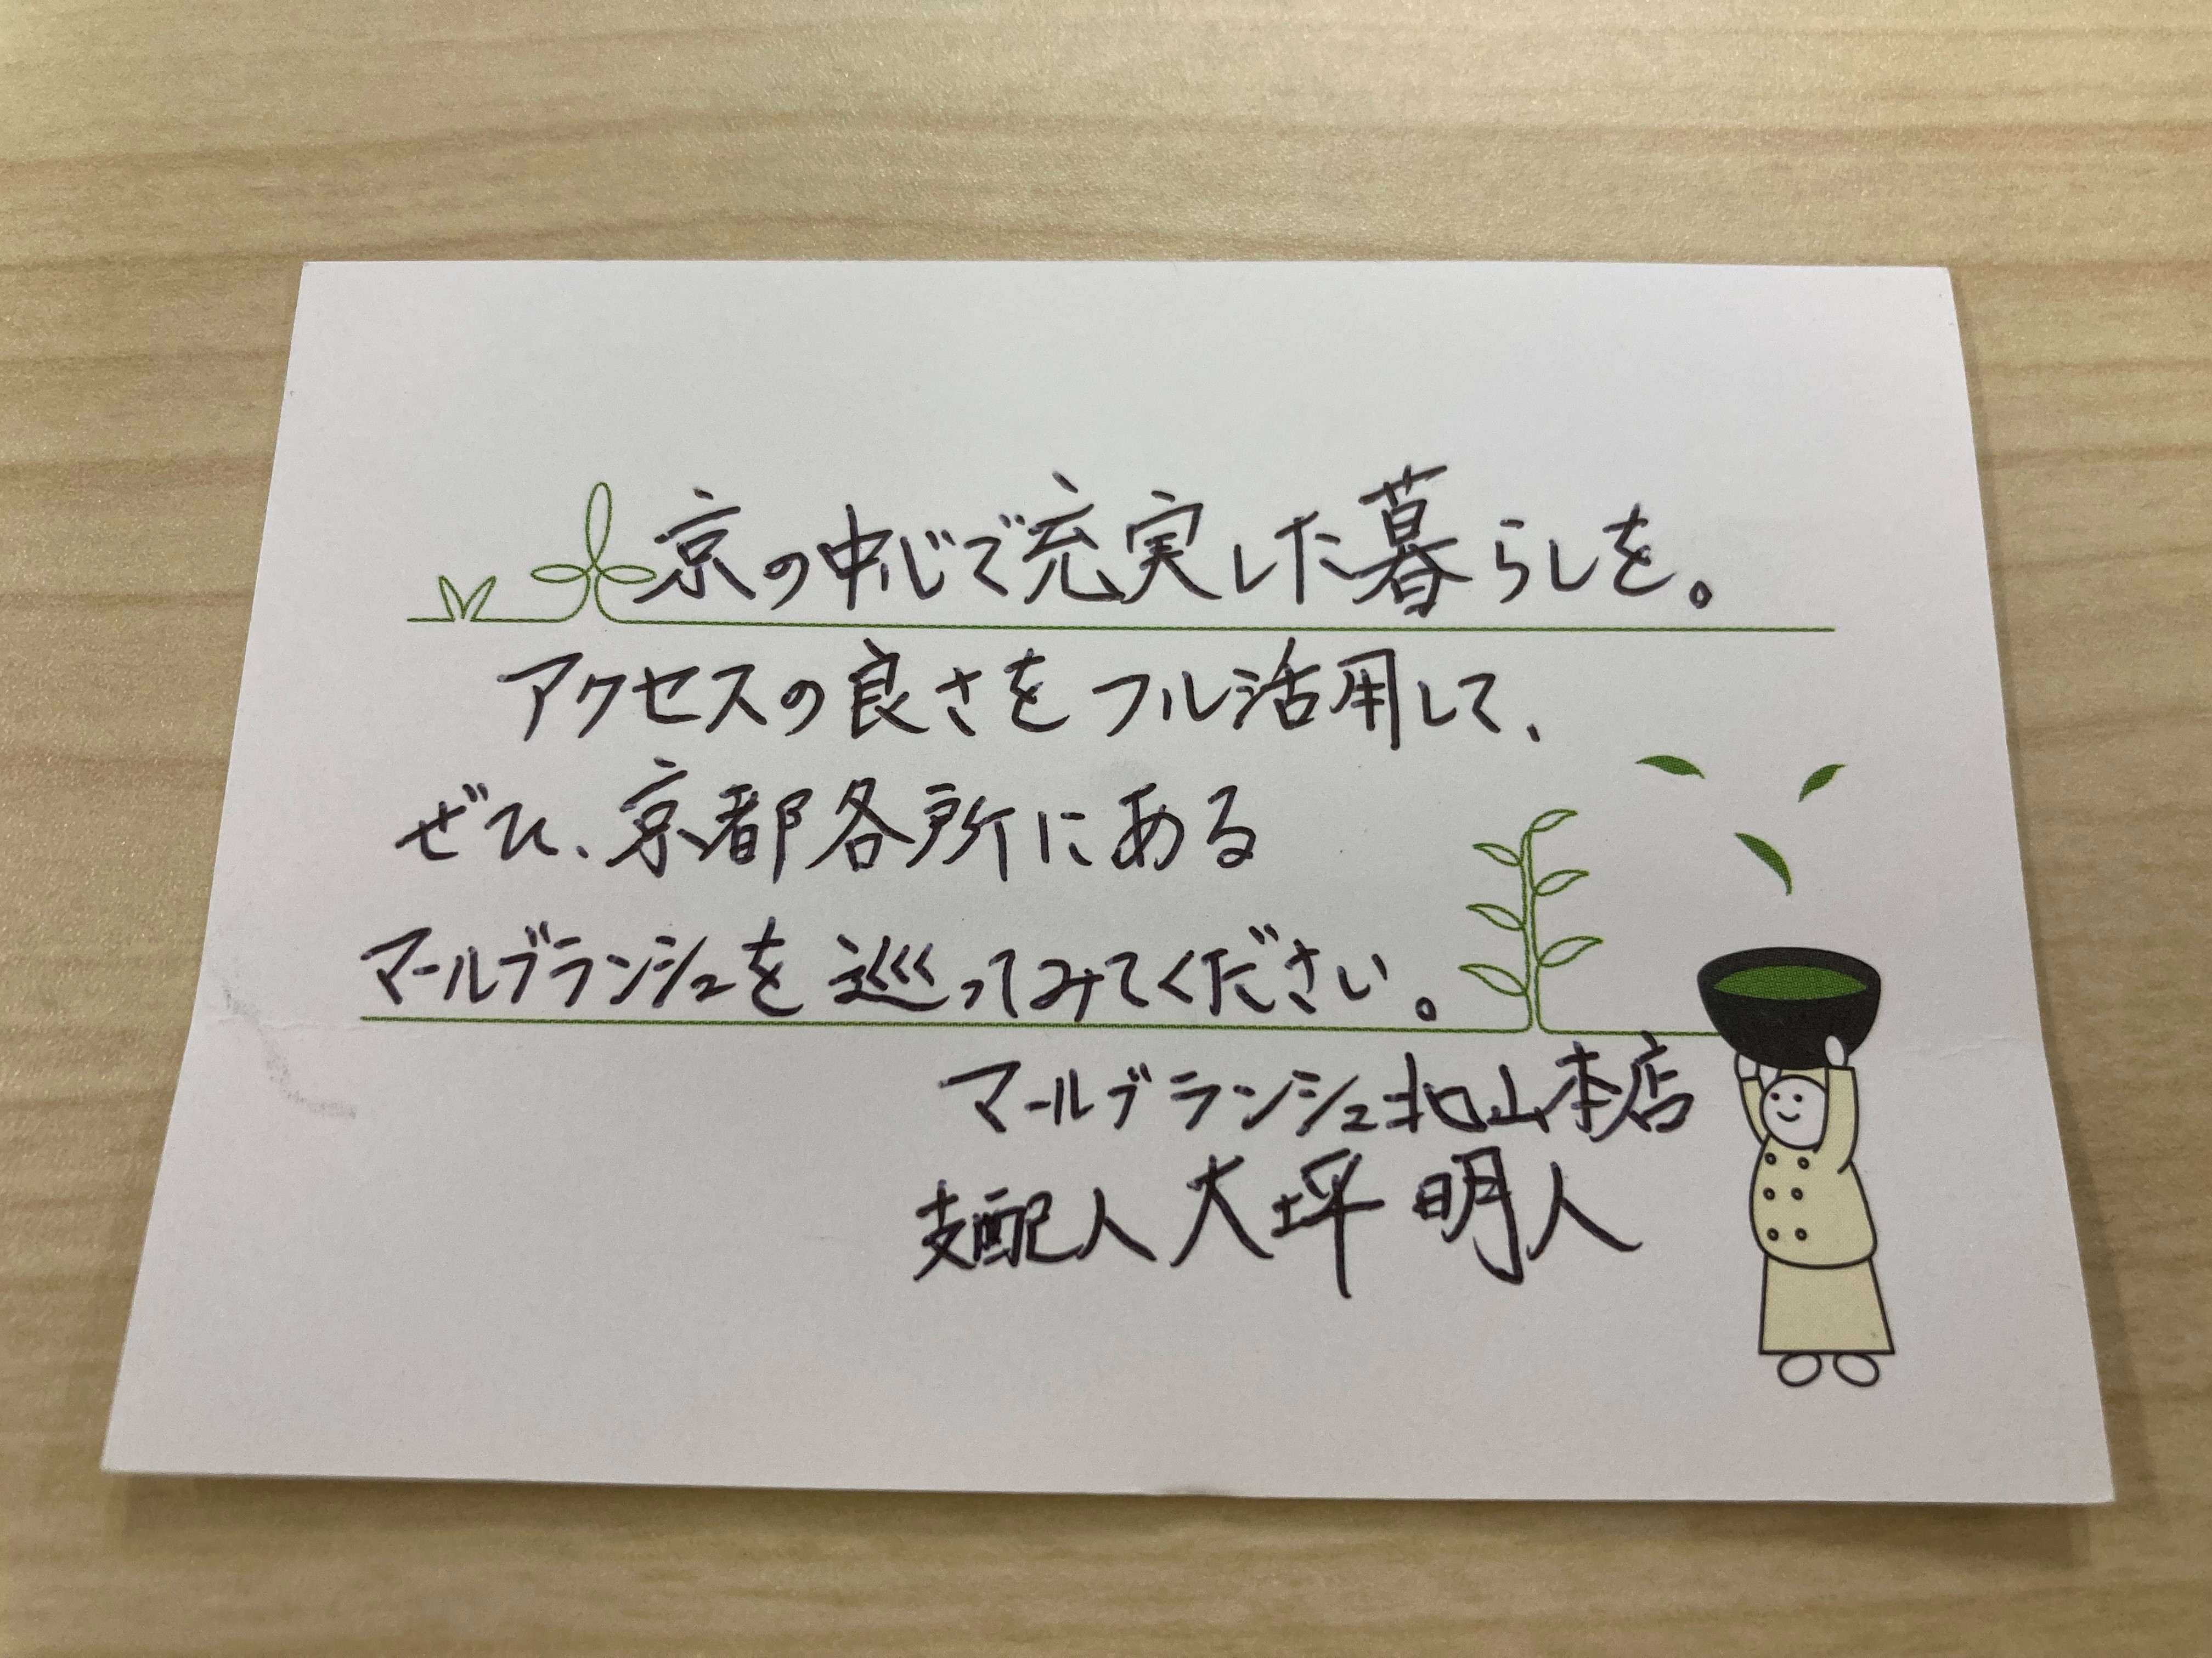 京の中心で充実した暮らしを。
アクセスの良さをフル活用して、
ぜひ、京都各所にある
マールブランシュを巡ってみてください。
マールブランシュ北山本店
支配人 大坪 明人